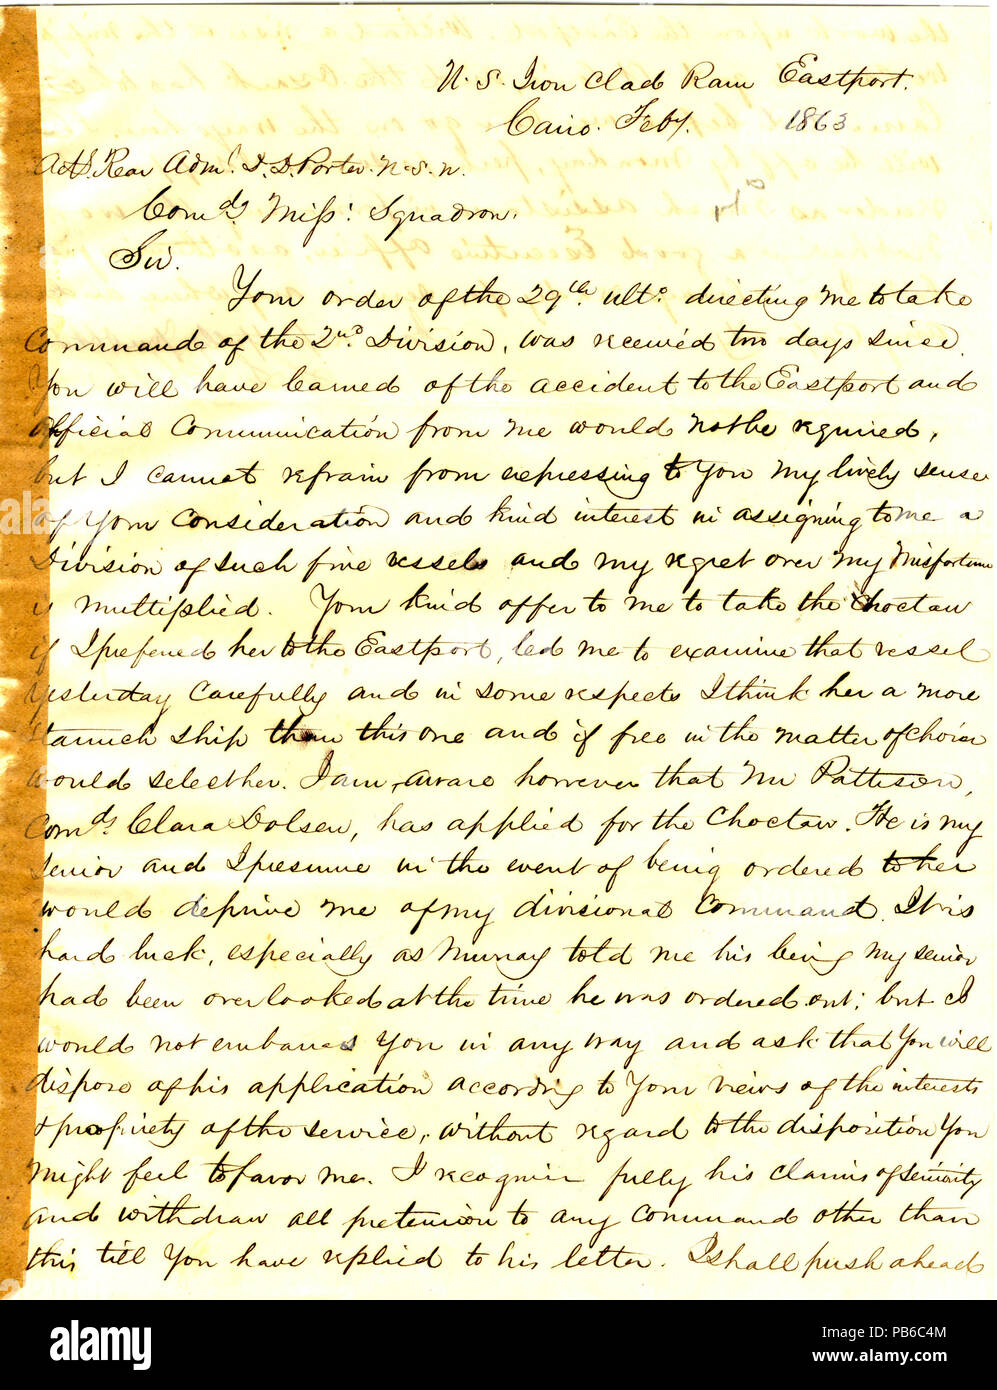 U. S. Iron Clad Ram Eastport.
Cairo. Feby. 1863
Actg. Rear Adml. D. D. Porter. U. S. N.
Comdg Missi. Squadron.
Sir.
Your order of the 29th. ulto. directing me to take
Command of the 2nd. Division, was received two days since.
You will have learned of the accident to the Eastport and
official Communication from me would not be required,
but I cannot refrain from expressing to You my lively sense
of Your Consideration and kind interest in assigning to me a
Division of such fine vessels and my regret over my misfortune
is multiplied. Your kind offer to me to take the Choctaw
if I preferred her to the Eastport, led me to examine that vessel
yesterday Carefully and in some respects I think her a more
staunch ship than this one and if free in the matter of choice
would select her. I am aware however that Mr Pattison,
Comdg Clara Dolsen, has applied for the Choctaw. He is my
senior and I presume in the event of being ordered to her
would deprive me of my divisional Command. It is
hard luck, especially as Murray told me his being my senior
had been overlooked at the time he was ordered out; but I
would not embarrass You in any way and ask that You will
dispose of his application according to Your views of the interests
& propriety of the service, without regard to the disposition You
might feel to favor me. I recognize fully his claims of seniority
and withdraw all pretension to any Command other than
this till You have replied to his letter. I shall push ahead
alamy
a
a
alamy
Image ID: PB6C4M
www.alamy.com